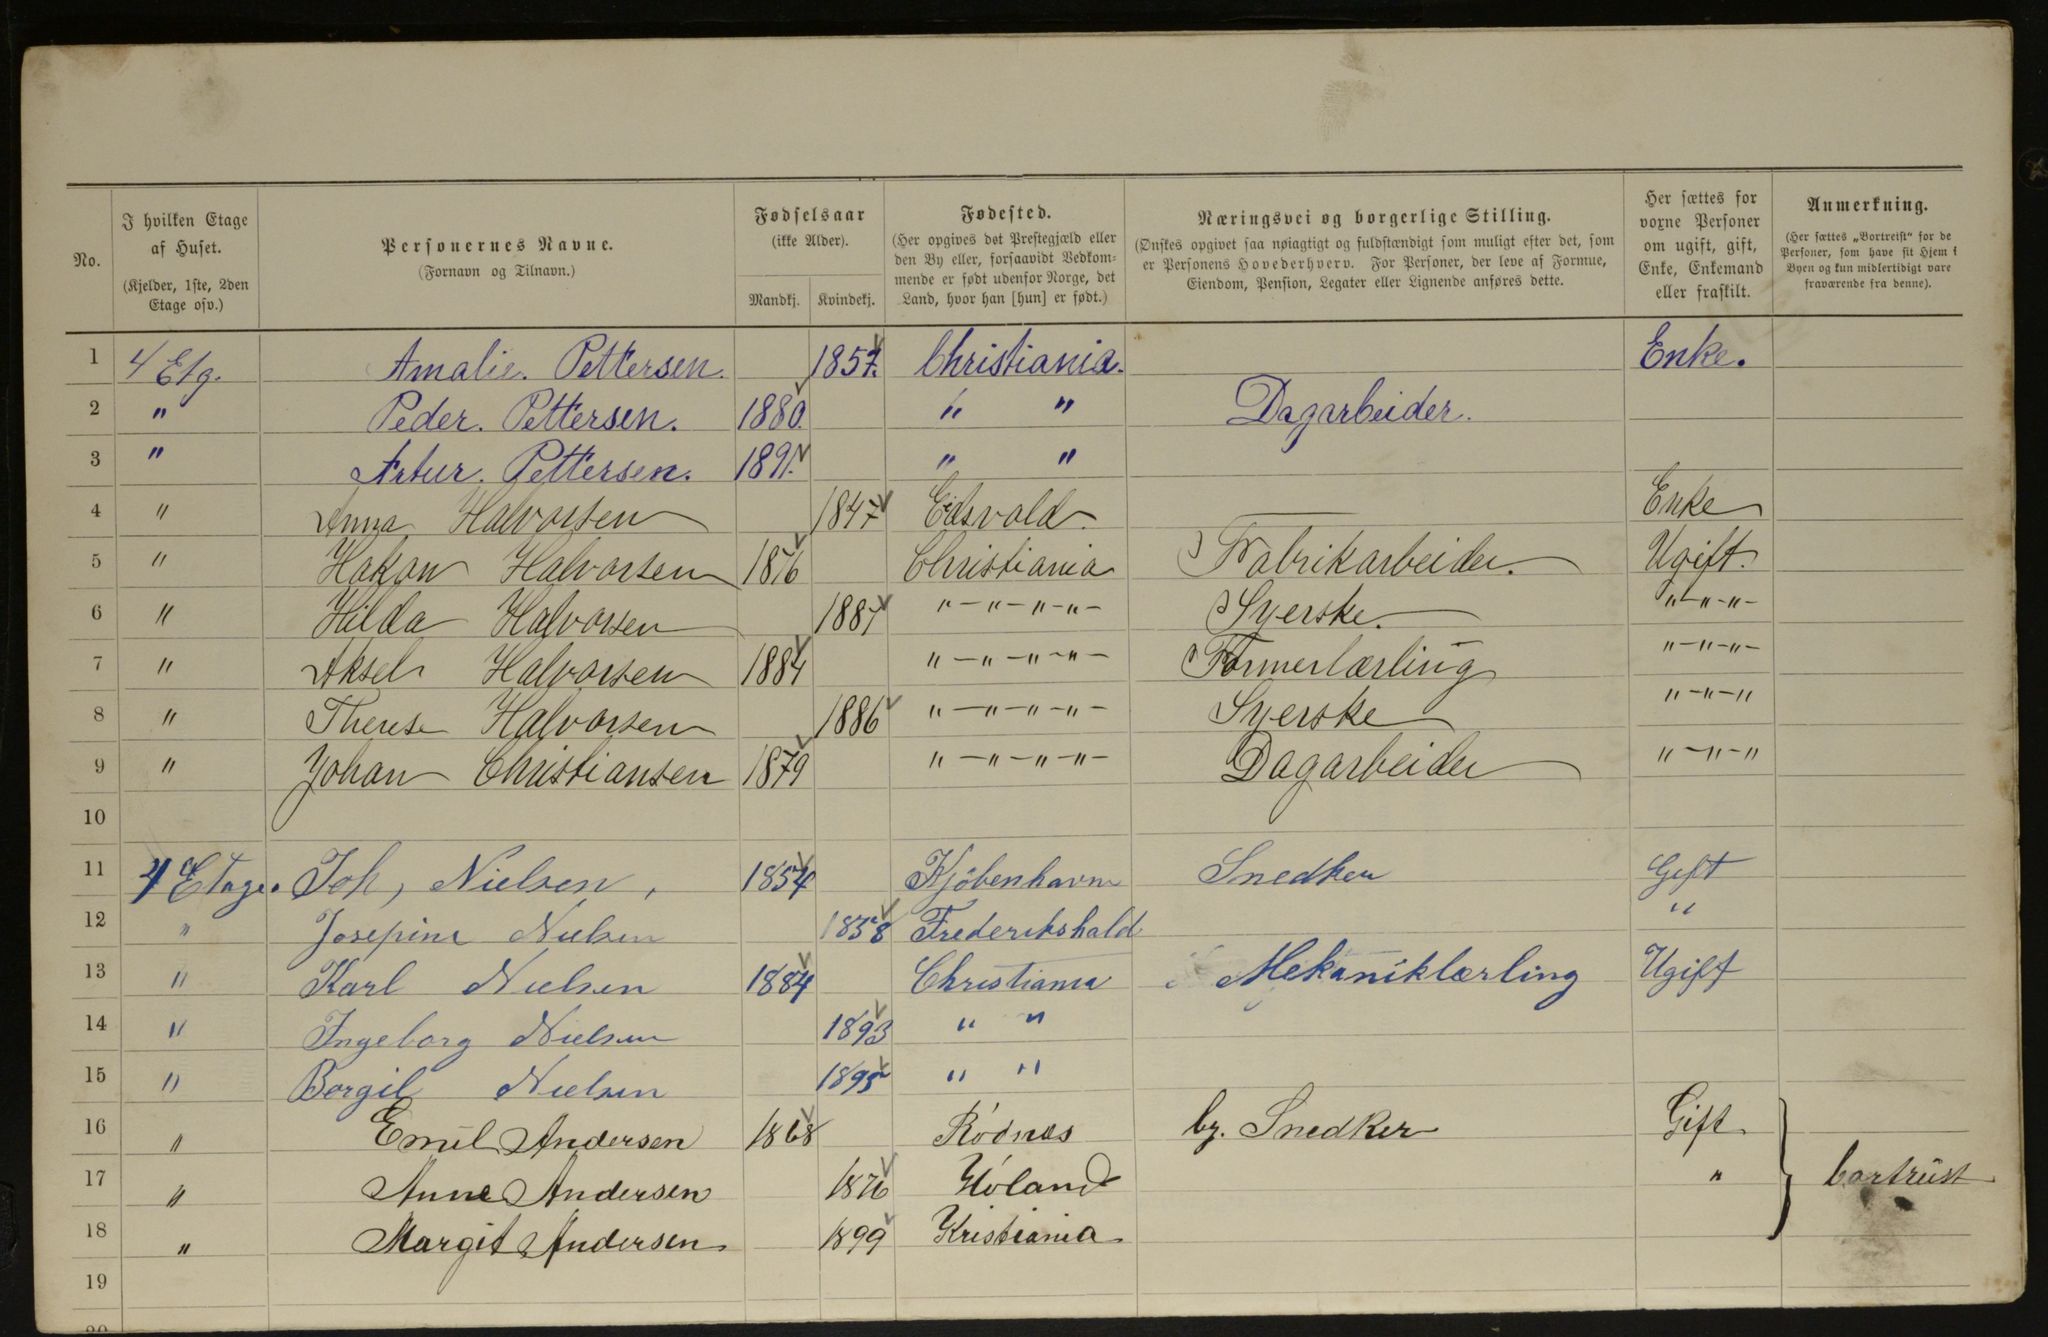 No.
I hvilken Etage af Huset. (Kjelder, 1ste, 2den Etage osv.)
Personernes Navne. (Fornavn og Tilnavn.)
Fødselsaar (ikke Alder). Mandkj. Kvindekj.
Fødested. (Her opgives det Prestegjæld eller den By eller, forsaavidt Vedkommende er født udenfor Norge, det Land, hvor han [hun] er født.)
Næringsvei og borgerlige Stilling. (Ønskes opgivet saa nøiagtigt og fuldstændigt som muligt efter det, som er Personens Hovederhverv. For Personer, der leve af Formue, Eiendom, Pension, Legater eller Lignende anføres dette.
Her sættes for voxne Personer om ugift, gift, Enke, Enkemand eller fraskilt.
Anmerkning. (Her sættes „Bortreist“ for de Personer, som have sit Hjem i Byen og kun midlertidigt vare fraværende fra denne).
1 4 Etg. Amalie. Pettersen. 1857. Christiania. Enke.
2 " Peder. Pettersen. 1880. " " Dagarbeider.
3 " Artur. Pettersen. 1891. " "
4 " Anna Halvorsen 1847 Eidsvold Enke
5 " Hakon Halvorsen 1876 Christiania Fabrikarbeider. Ugift.
6 " Hilda Halvorsen 1881 "-"-"-"- Syerske. "-"-"-
7 " Aksel Halvorsen 1884 "-"-"-"- Formerlærling "-"-"-
8 " Therese Halvorsen 1886 "-"-"-"- Syerske "-"-"
9 " Johan Christiansen 1879 "-"-"-"- Dagarbeider "-"-"
10
11 4 Etage. Joh, Nielsen, 1854 Kjöbenhavn Snedker Gift
12 " Josepine Nielsen 1858 Frederikshald "
13 " Karl Nielsen 1884 Christiania Mekaniklærling Ugift
14 " Ingeborg Nielsen 1893 " "
15 " Borgil Nielsen 1895 " "
16 " Emil Andersen 1868 Rödnes by. Snedker Gift
17 " Anne Andersen 1876 Höland " } bortreist
18 " Margit Andersen 1899 Kristiania
19